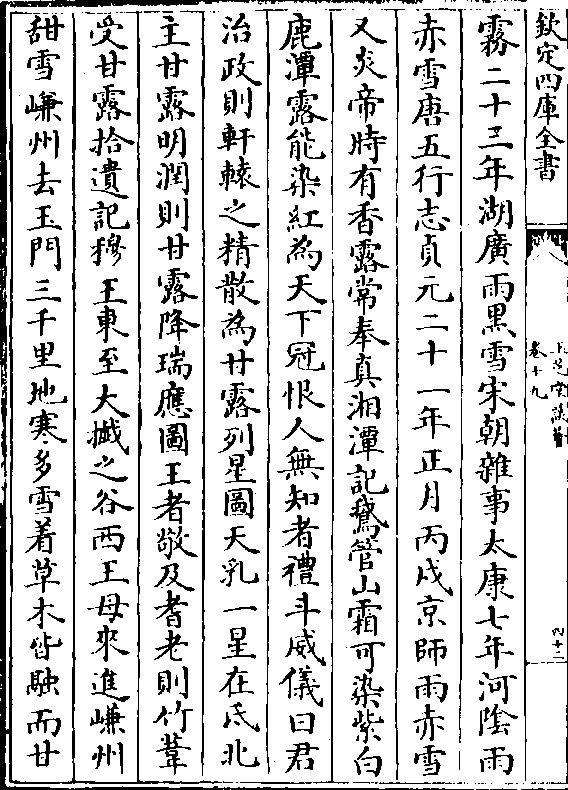 欽定四庫全書
卷十九
四十二
霧二十三年湖廣雨黑雪宋朝雜事太康七年河陰雨
赤雪唐五行志貞元二十一年正月丙戌京師雨赤雪
又炎帝時有香露常奉真湘潭記鵞管山霜可染紫白
鹿潭露能染紅為天下冠恨人無知者禮斗威儀曰君
治政則軒轅之精散為甘露列星圖天乳一星在氐北
主甘露明潤則甘露降瑞應圖王者敬及耆老則竹葦
受甘露拾遺記穆王東至大㩥之谷西王母來進嵰州
甜雪嵰州去玉門三千里地寒多雪着草木皆融而甘